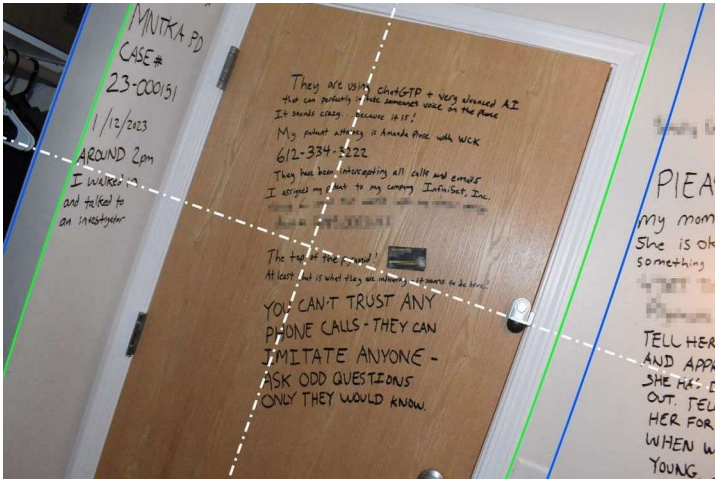 MNTKA PD
CASE#
23-000151
1/12/2023
AROUND 2pm
I walked in
and talked to
an investigator
They are using ChatGTP + very advanced A.I
that can perfectly imitate someones voice on the phone
It sounds crazy... because it is!
My patent attorney is Amanda Prose with WCK
612-334-3222
They have been intercepting all calls and emails
I assigned my patent to my company InfiniSet, Inc.
The top of the pyramid!
At least that is what they are indicating - it seems to be true.
YOU CAN'T TRUST ANY
PHONE CALLS - THEY CAN
IMITATE ANYONE -
ASK ODD QUESTIONS
ONLY THEY WOULD KNOW.
my mom
She is ok
something
TELL HER
AND
SHE HAS
OUT. TELL
HER FOR
WHEN
YOUNG